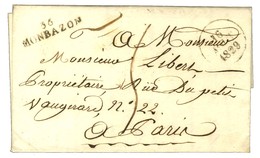 36
MONBAZON
A Monsieur
Monsieur Libert
Propriétaire Rüe Du petit
vaugirard N.° 22.
a Paris
1829